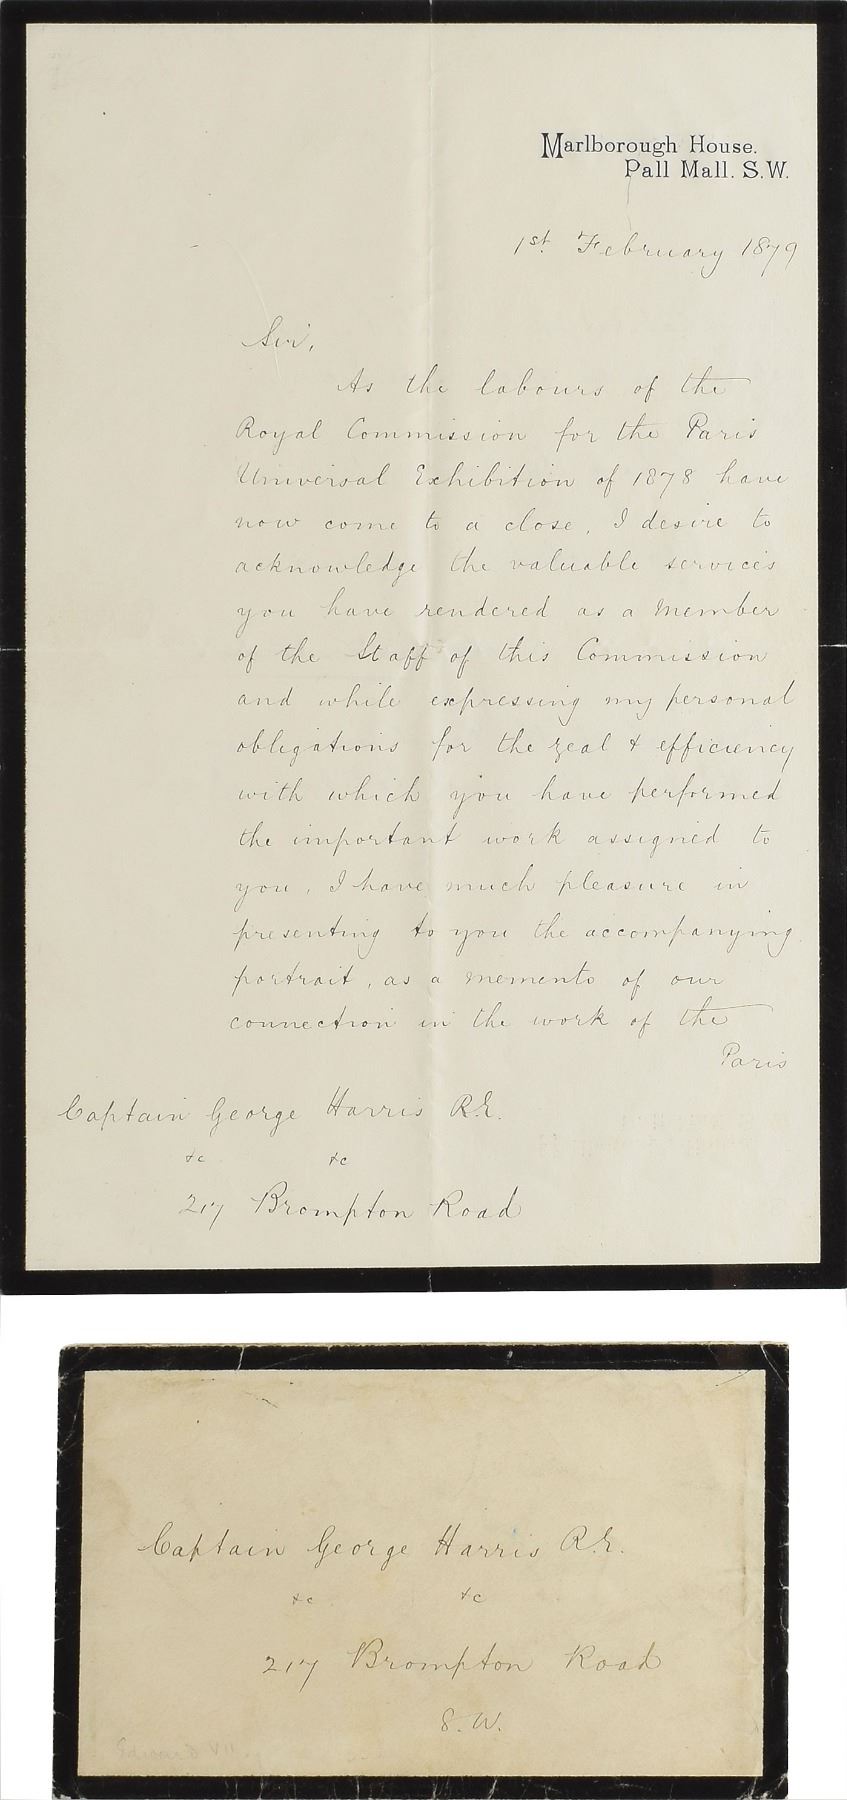 Marlborough House.
Pall Mall. S.W.
1st. February 1879
Sir,
As the labours of the
Royal Commission for the Paris
Universal Exhibition of 1878 have
now come to a close, I desire to
acknowledge the valuable services
you have rendered as a Member
of the Staff of this Commission
and while expressing my personal
obligations for the zeal & efficiency
with which you have performed
the important work assigned to
you, I have much pleasure in
presenting to you the accompanying
portrait, as a memento of our
connection in the work of the
Paris
Captain George Harris R.E.
&c &c
217 Brompton Road
Captain George Harris R.E.
&c &c
217 Brompton Road
S.W.
Edward VII